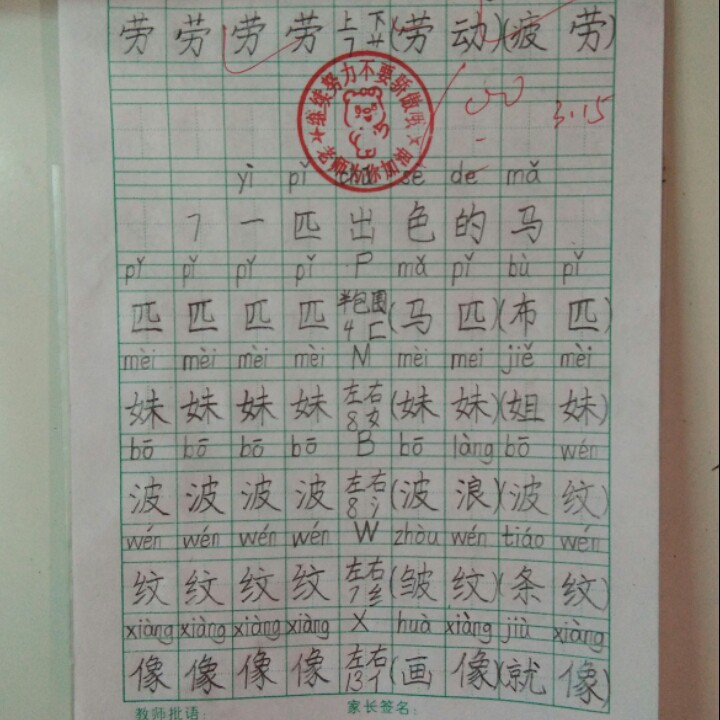 劳 劳 劳 劳 上下 7 艹 (劳 动)(疲 劳)
继续努力不要骄傲哦
老师为你加油
3.15
yì pǐ chū sè de mǎ
7 一 匹 出 色 的 马
pǐ pǐ pǐ pǐ P mǎ pǐ bù pǐ
匹 匹 匹 匹 半包围 4 匚 (马 匹)(布 匹)
mèi mèi mèi mèi M mèi mei jiě mèi
妹 妹 妹 妹 左右 8 女 (妹 妹)(姐 妹)
bō bō bō bō B bō làng bō wén
波 波 波 波 左右 8 氵 (波 浪)(波 纹)
wén wén wén wén W zhòu wén tiáo wén
纹 纹 纹 纹 左右 7 纟 (皱 纹)(条 纹)
xiàng xiàng xiàng xiàng X huà xiàng jiù xiàng
像 像 像 像 左右 13 亻 (画 像)(就 像)
教师批语: 家长签名: